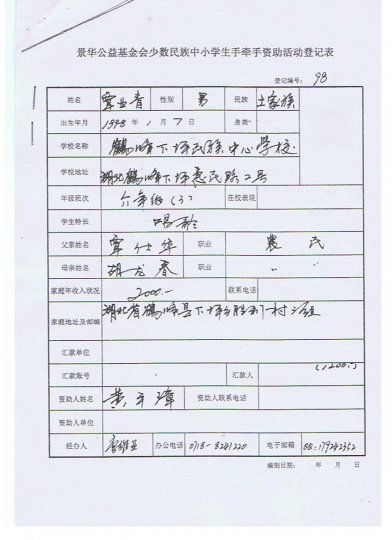 景华公益基金会少数民族中小学生手牵手资助活动登记表
登记编号: 98
姓名 覃业青 性别 男 民族 土家族
出生年月 1998年1月7日 身高
学校名称 鹤峰下坪民族中心学校
学校地址 湖北鹤峰下坪惠民路2号
年级班次 六年级(3) 在校表现
学生特长 唱歌
父亲姓名 覃仕华 职业 农民
母亲姓名 胡龙春 职业 〃 〃
家庭年收入状况 2000.- 联系电话
家庭地址及邮编 湖北省鹤峰县下坪乡胜利村 组
汇款单位
汇款账号 汇款人 (1200.-)
资助人姓名 黄 瑋 资助人联系电话
资助人单位
经办人 办公电话 0718-8241220 电子邮箱 QQ:179242352
编制日期: 年 月 日